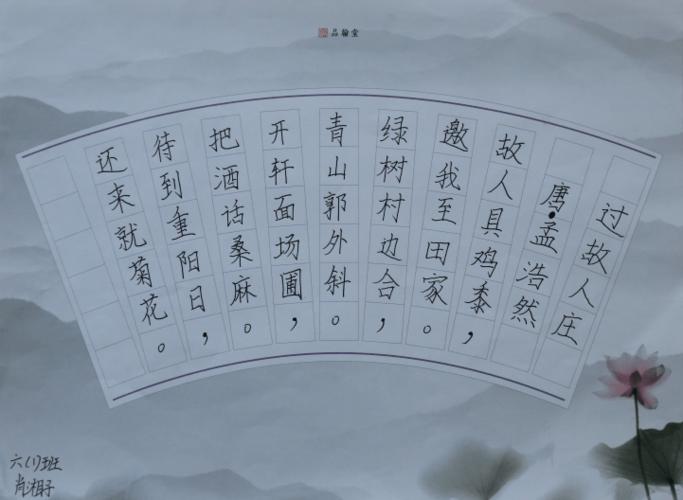 品翰堂
过故人庄
唐·孟浩然
故人具鸡黍，
邀我至田家。
绿树村边合，
青山郭外斜。
开轩面场圃，
把酒话桑麻。
待到重阳日，
还来就菊花。
六(1)班
肖湘子